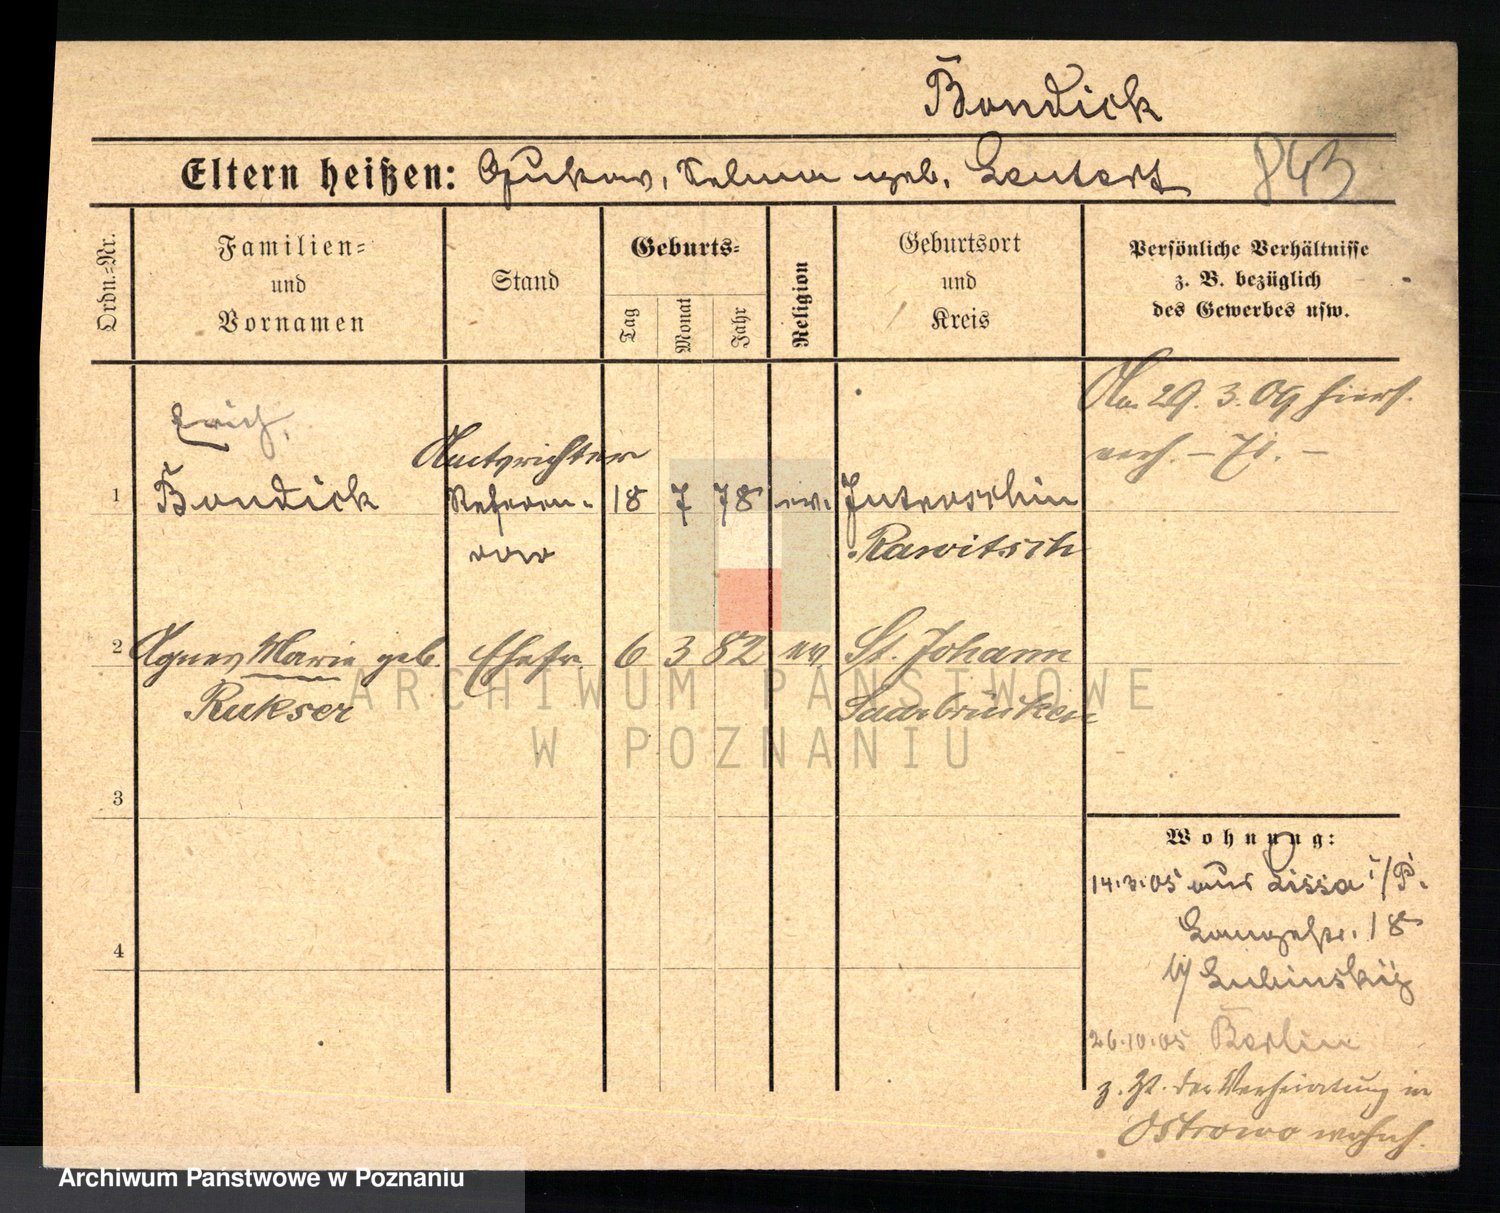 Bondick
Eltern heißen: Gustav, Selma geb. Leutert 843
Ordn.=Nr.
Familien=
und
Vornamen
Stand
Geburts=
Tag
Monat
Jahr
Religion
Geburtsort
und
Kreis
Persönliche Verhältnisse
z. B. bezüglich
des Gewerbes usw.
Am 29. 3. 09 hiers.
verh. – Zi. –
Erich,
Amtsrichter
1 Bondick Referen- 18 7 78 ev. Jutroschin
dar Rawitsch
2 Agnes Marie geb. Ehefr. 6 3 82 ev St. Johann
Rukser Saarbrücken
3
4
Wohnung:
14.3.05 aus Lissa i/P.
Langestr. 18
b/ Lubinski
26.10.05 Berlin
z. Zt. der Verheiratung in
Ostrowo wohnh.
ARCHIWUM PAŃSTWOWE
W POZNANIU
Archiwum Państwowe w Poznaniu